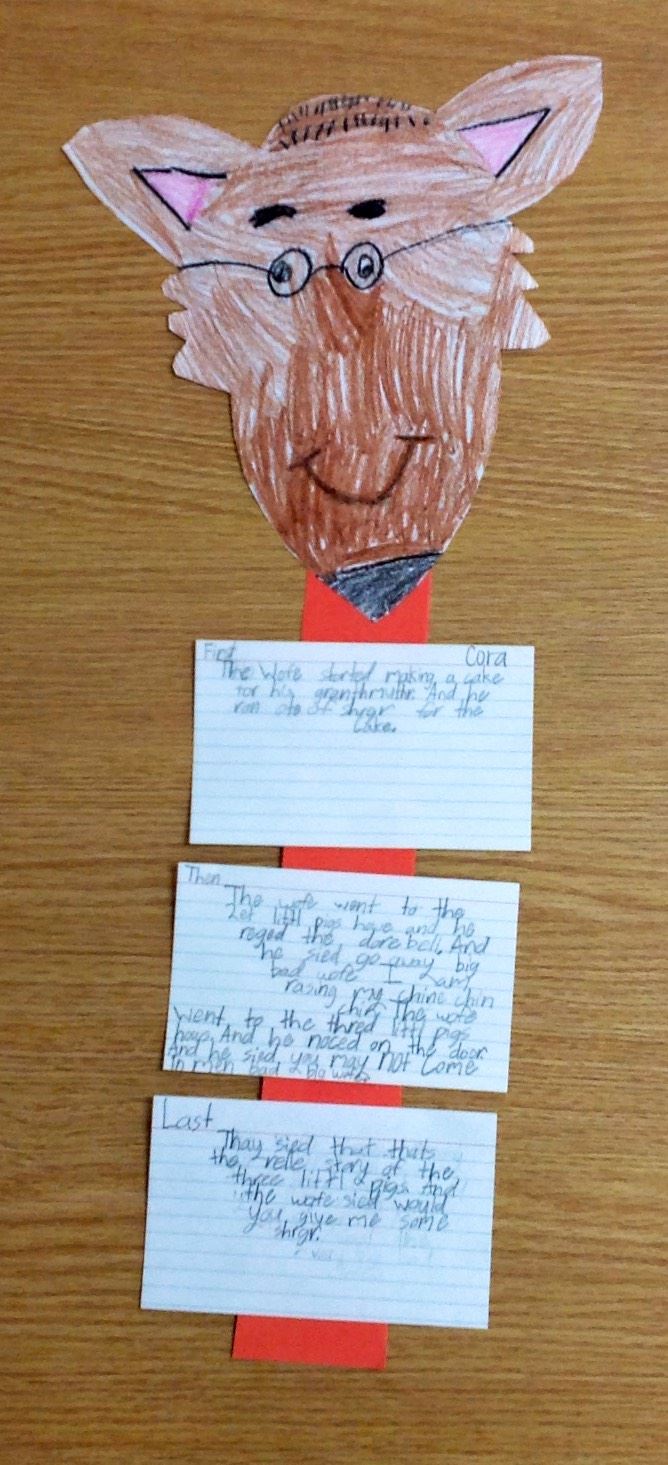 First
Cora
The Wofe started making a cake
for his granthmuthr. And he
ran oto of shrgr for the
cake.
Then
The wofe went to the
2et littl pigs hove and he
reged the dore bell. And
he sied go away big
bad wofe I am
rasing my chine chin
chin. The wofe
went to the thred littl pigs
hows And he noced on the door
and he sied you may not come
in men bad big wofe
Last
Thay sied that thats
the rele story of the
three littl pigs And
the wofe sied would
you give me some
shrgr.